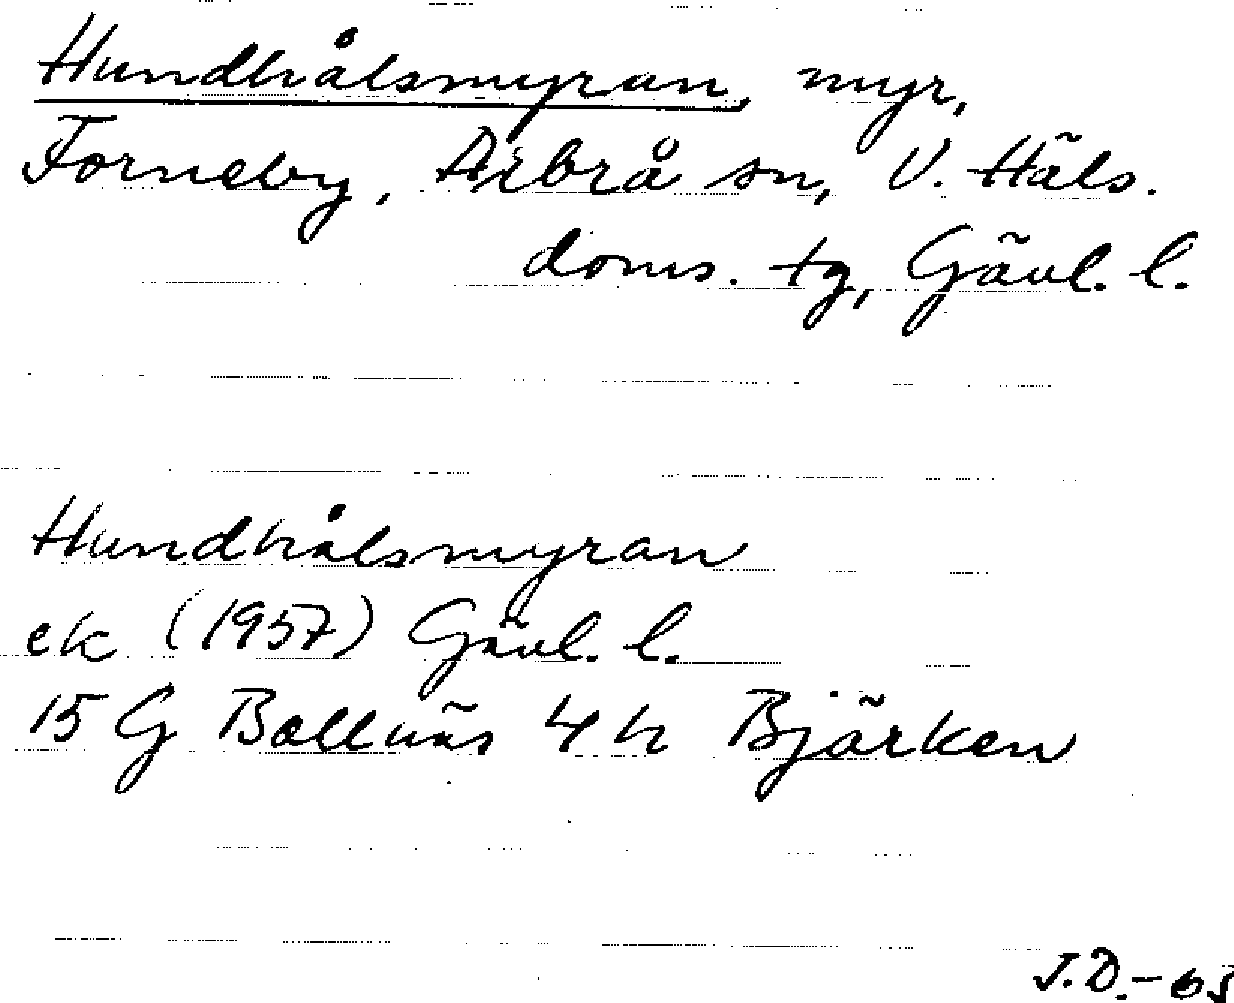 Hundhålsmyran, myr,
Forneby, Arbrå sn, V. Häls.
doms. tg, Gävl. l.
Hundhålsmyran
ek (1957) Gävl. l.
15 G Bollnäs 4 h Bjärken
J.D.-65